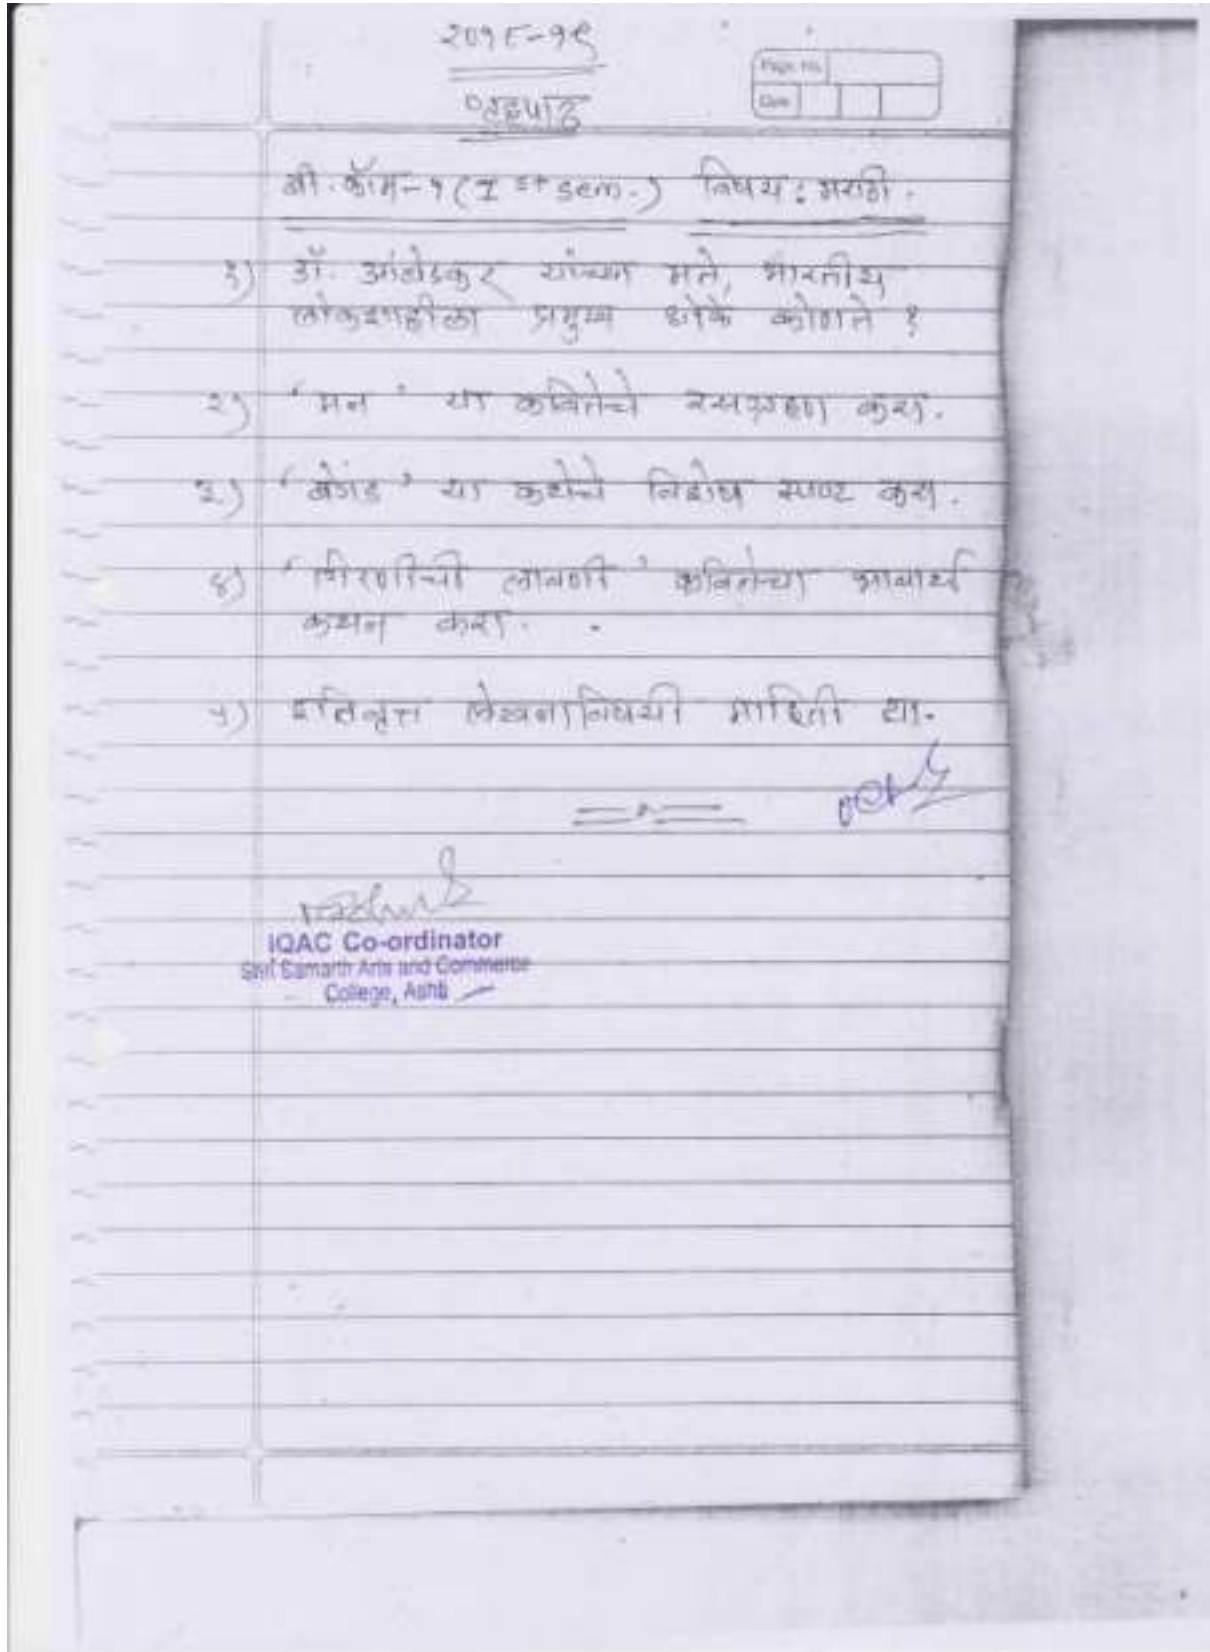 २०१८-१९
गृहपाठ
Page No.
Date
बी. कॉम-१ (I st sem.) विषय : मराठी.
१) डॉ. आंबेडकर यांच्या मते, भारतीय
लोकशाहीला प्रमुख धोके कोणते ?
२) 'मन' या कवितेचे रसग्रहण करा.
३) 'बेगड' या कथेचे विशेष स्पष्ट करा.
४) 'गिरणीची लावणी' कवितेचा भावार्थ
कथन करा.
५) इतिवृत्त लेखनाविषयी माहिती द्या.
IQAC Co-ordinator
Shri Samarth Arts and Commerce
College, Ashti